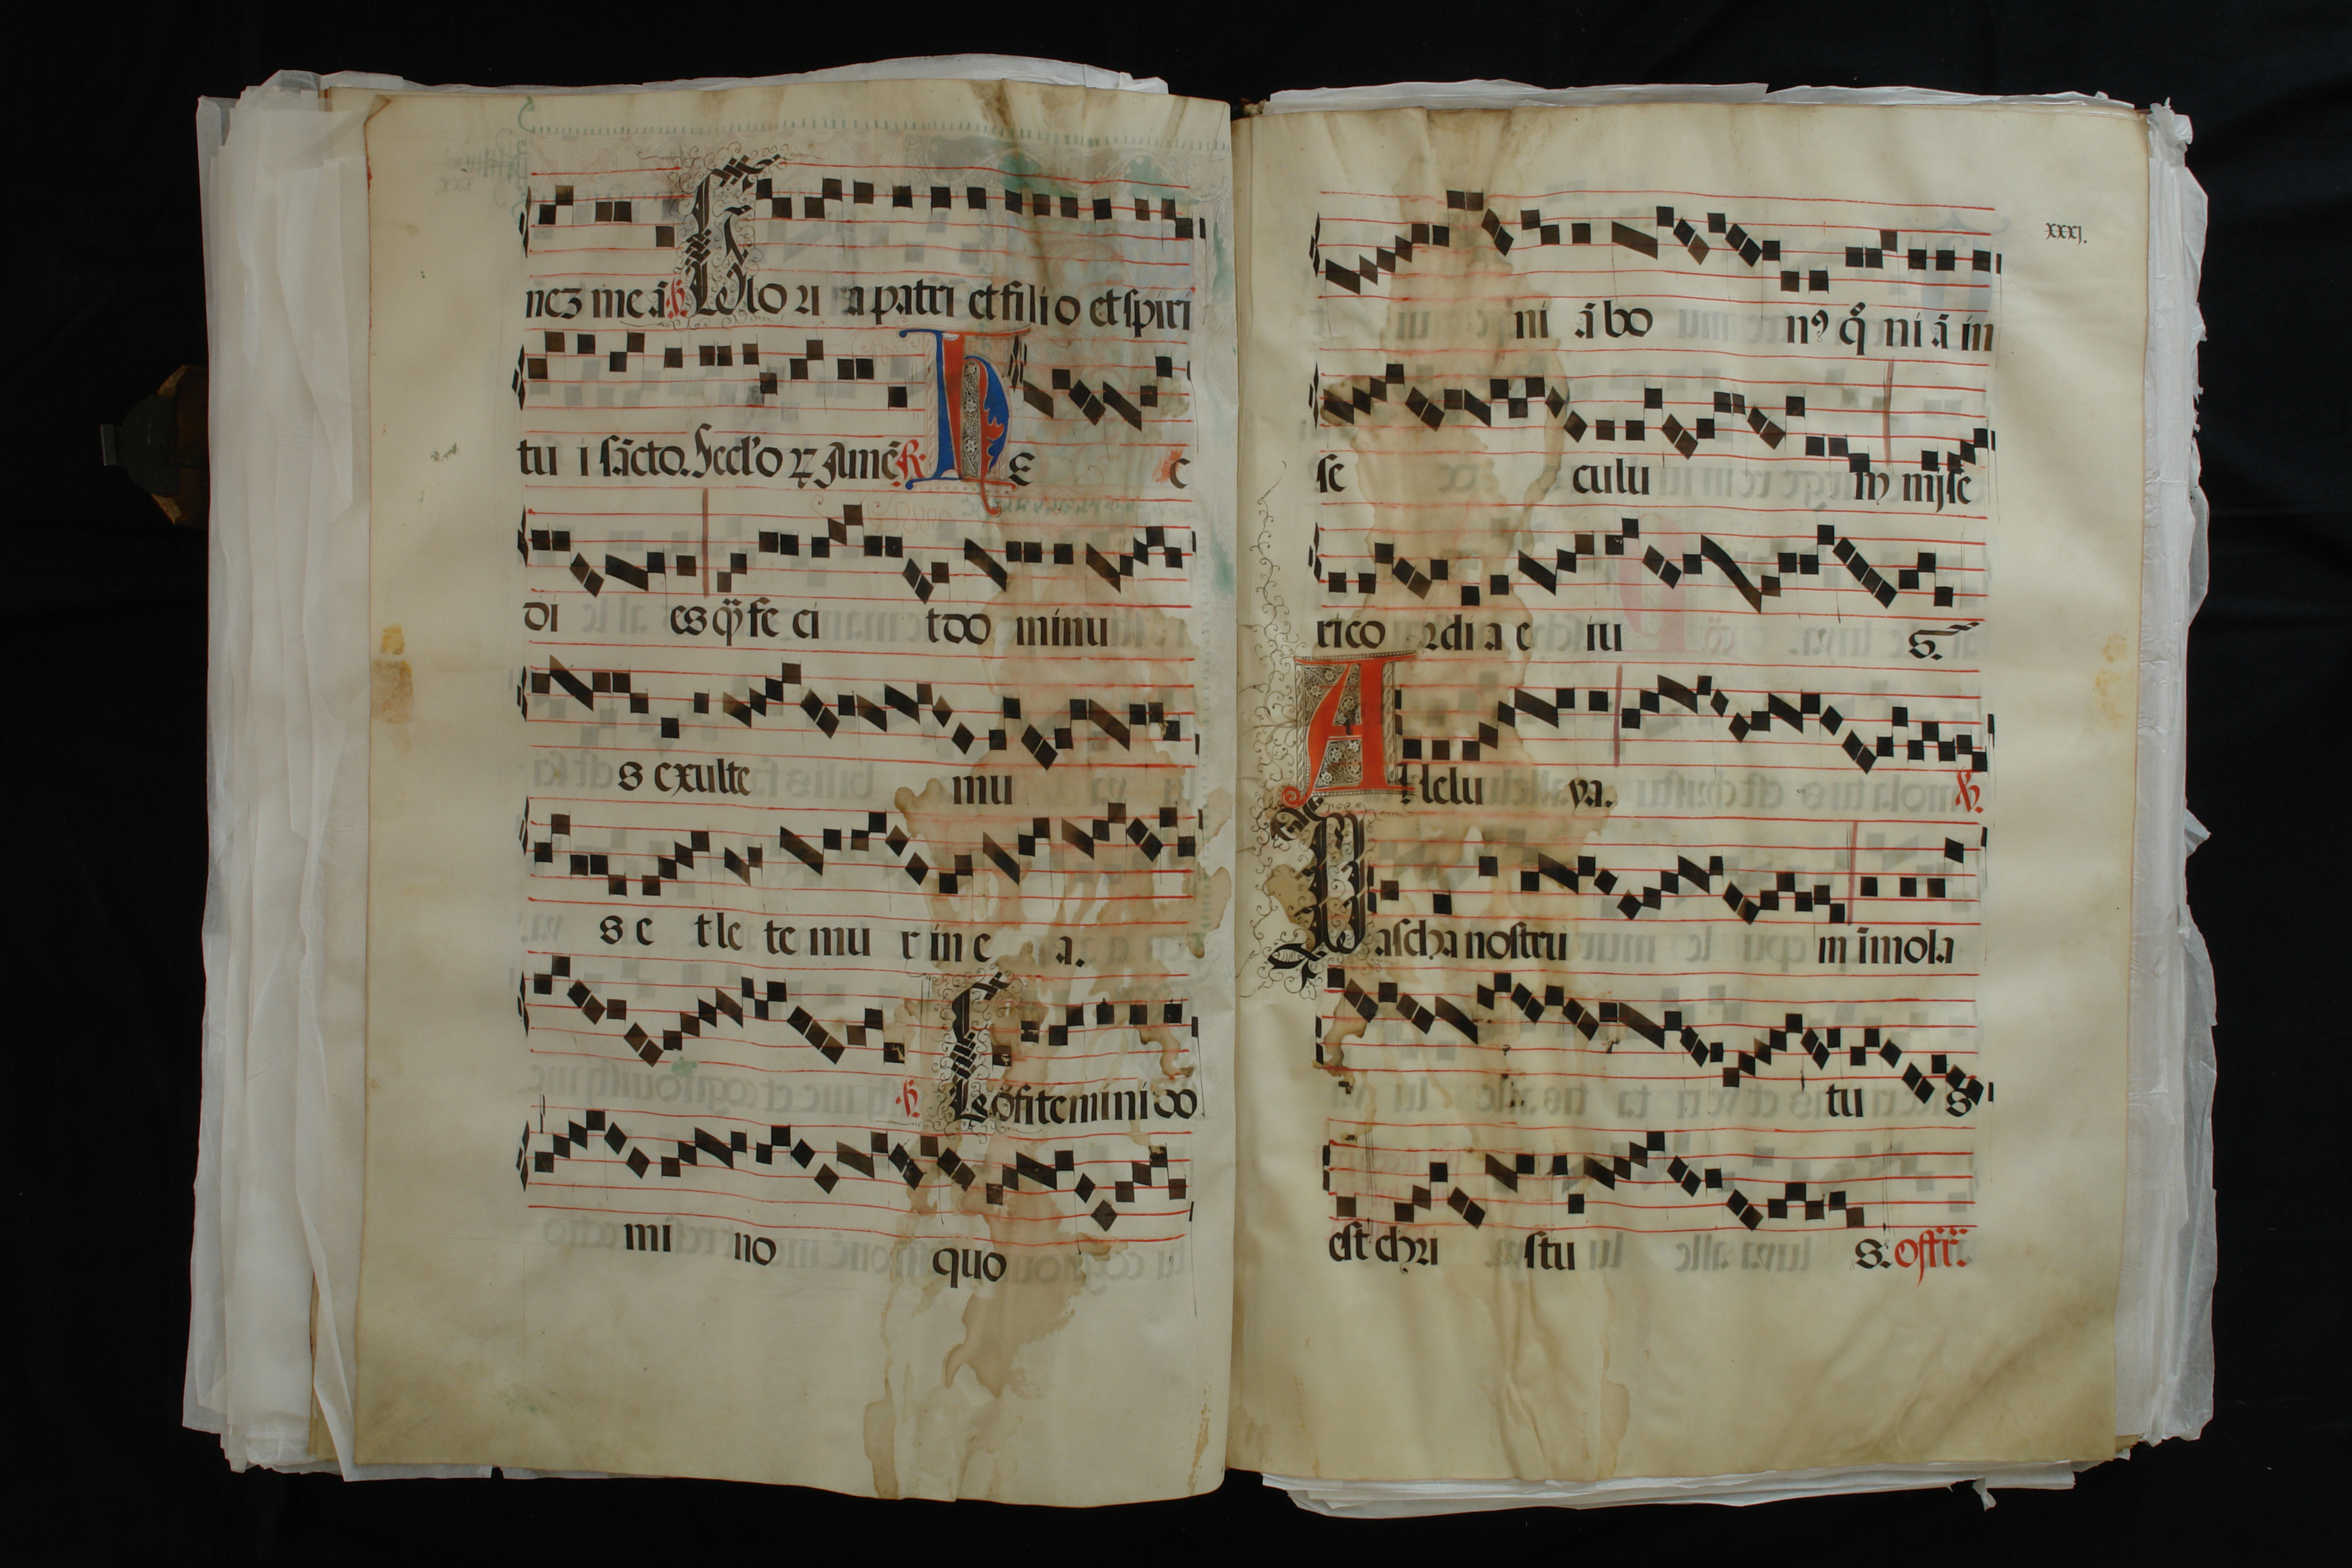 nez meā ℣. Glo ri a patri et fili o et spiri
tu i sācto. Seclo rz Amē ℟. H e c
di es q̄ fe ci t do minu
s exulte mu
s e t le te mu r in e a.
℣. Cōfitemini do
mi no quo
xxxj.
ni ā bo nꝰ q̄ ni ā in
se culu m mise
rico rdi a e iu s.
A llelu ya. ℣.
Pascha nostru m īmola
tu s
est chri stu s. offr̄.